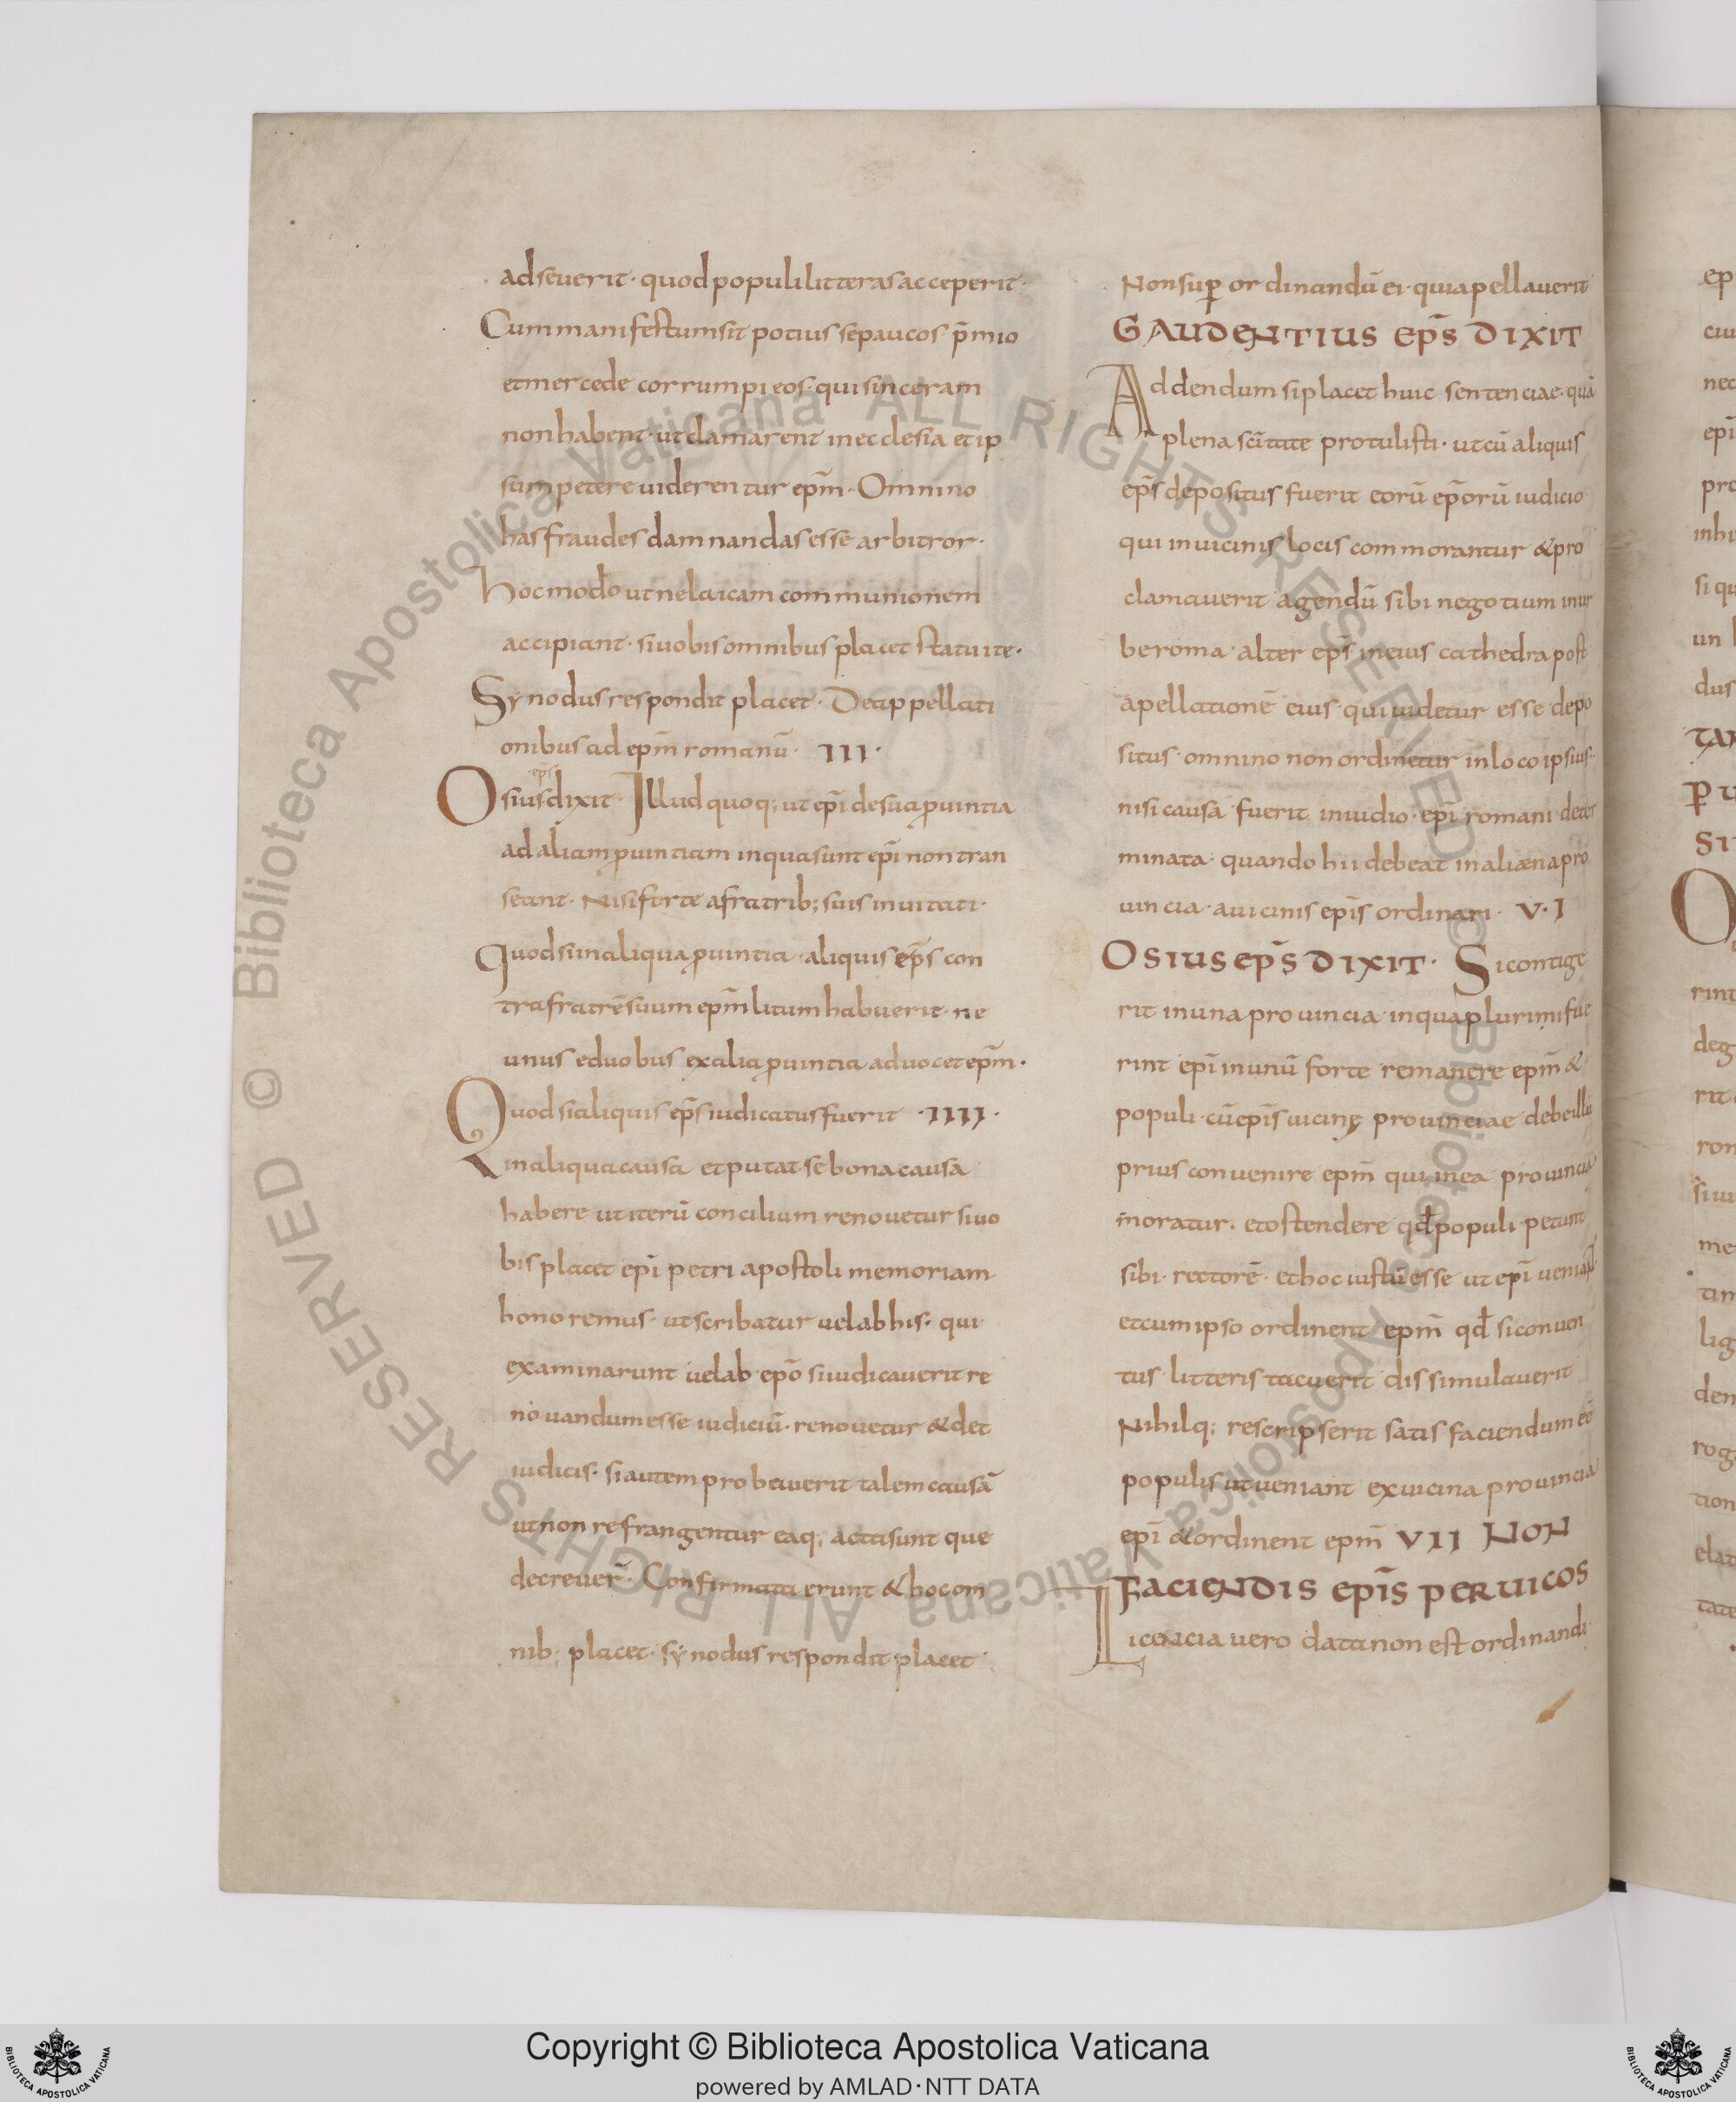 adseuerit· quod populi litteras acceperit·
Cum manifestum sit potius se paucos p̄mio
et mercede corrumpi eos· qui sinceram
non habent· ut clamarent in ecclesia et ip
sum petere uiderentur ep̄m· Omnino
has fraudes damnandas esse arbitror·
hoc modo ut ne laicam communionem
accipiant· si uobis omnibus placet statuite·
Synodus respondit placet· De appellati
onibus ad ep̄m romanū· III·
ep̄s
Osius dixit· Illud quoq; ut ep̄i de sua ꝓuintia
ad aliam ꝓuintiam in qua sunt ep̄i non tran
seant· Nisi forte a fratrib; suis inuitati·
Quod si in aliqua ꝓuintia· aliquis ep̄s con
tra fratrē suum ep̄m litum habuerit· ne
unus e duobus ex alia ꝓuintia aduocet ep̄m·
Quod si aliquis ep̄s iudicatus fuerit ·IIII·
in aliqua causa et putat se bona causa
habere ut iterū concilium renouetur si uo
bis placet ep̄i petri apostoli memoriam
honoremus· ut scribatur uel ab his· qui
examinarunt uel ab ep̄o si iudicauerit re
nouandum esse iudiciū· renouetur & det
iudicis· si autem probauerit talem causā
ut non refrangentur eaq; acta sunt que
decreuer̄· Confirmata erunt & hoc om
nib; placet· synodus respondit placet·
Non suꝑ ordinandū ei· qui apellauerit
GAUDENTIUS EP̄S DIXIT
Addendum si placet huic sentenciae· quā
plena sc̄itate protulisti· ut cū aliquis
ep̄s depositus fuerit eorū ep̄orū iudicio·
qui in uicinis locis commorantur & pro
clamauerit agendū sibi negotium in ur
be roma· alter ep̄s in eius cathedra post
apellationē eius· qui uidetur esse depo
situs· omnino non ordinetur in loco ipsius·
nisi causa fuerit in iudio· ep̄i romani deter
minata· quando hii debeat in aliaena pro
uincia· a uicinis ep̄is ordinari· V·I
OSIUS EP̄S DIXIT· Si contige
rit in una prouincia in qua plurimi fue
rint ep̄i in unū forte remanere ep̄m &
populi· cū ep̄is uicinę prouinciae debeillū
prius conuenire ep̄m qui in ea prouincia
moratur· et ostendere qđ populi petunt
sibi· rectorē· et hoc iustū esse ut ep̄i ueniant
et cum ipso ordinent ep̄m qđ si conuen
tus· litteris tacuerit dissimulauerit
Nihilq; rescripserit satis faciendum eē
populis ut ueniant ex uicina prouincia
ep̄i & ordinent ep̄m VII NON
FACIENDIS EP̄IS PER UICOS
Licencia uero data non est ordinandi·
Copyright © Biblioteca Apostolica Vaticana
powered by AMLAD·NTT DATA